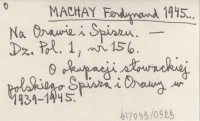 MACHAY Ferdynand 1945...
Na Orawie i Spiszu. —
Dz. Pol. 1, nr 156.
O okupacji słowackiej
polskiego Spisza i Orawy w
1939-1945.